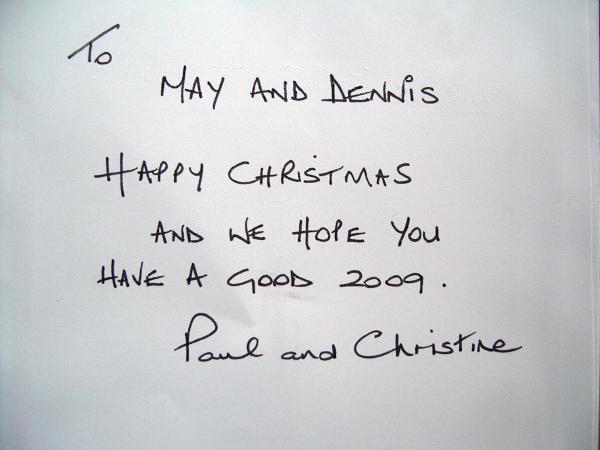 To
MAY AND DENNiS
HAPPY CHRISTMAS
AND WE HOPE YOU
HAVE A GOOD 2009.
Paul and Christine